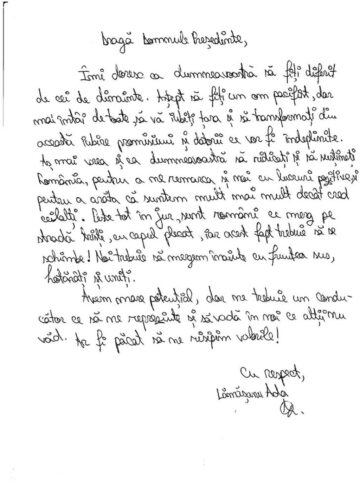 Dragă Domnule Președinte,
Îmi doresc ca dumneavoastră să fiți diferit
de cei de dinainte. Aștept să fiți un om pacifist, dar
mai întâi de toate, să vă iubiți țara și să transformați din
această iubire promisiuni și datorii ce vor fi îndeplinite.
Aș mai vrea și ca dumneavoastră să ridicați și să susțineți
România, pentru a ne remarca și noi cu lucruri pozitive, și
pentru a arăta că suntem mult mai mult decât cred
ceilalți. Peste tot în jur, sunt români ce merg pe
stradă triști, cu capul plecat, iar acest fapt trebuie să se
schimbe! Noi trebuie să mergem înainte cu fruntea sus,
hotărâți și uniți.
Avem mare potențial, dar ne trebuie un condu-
cător ce să ne reprezinte și să vadă în noi ce alții nu
văd. Ar fi păcat să ne risipim valorile!
Cu respect,
Ada